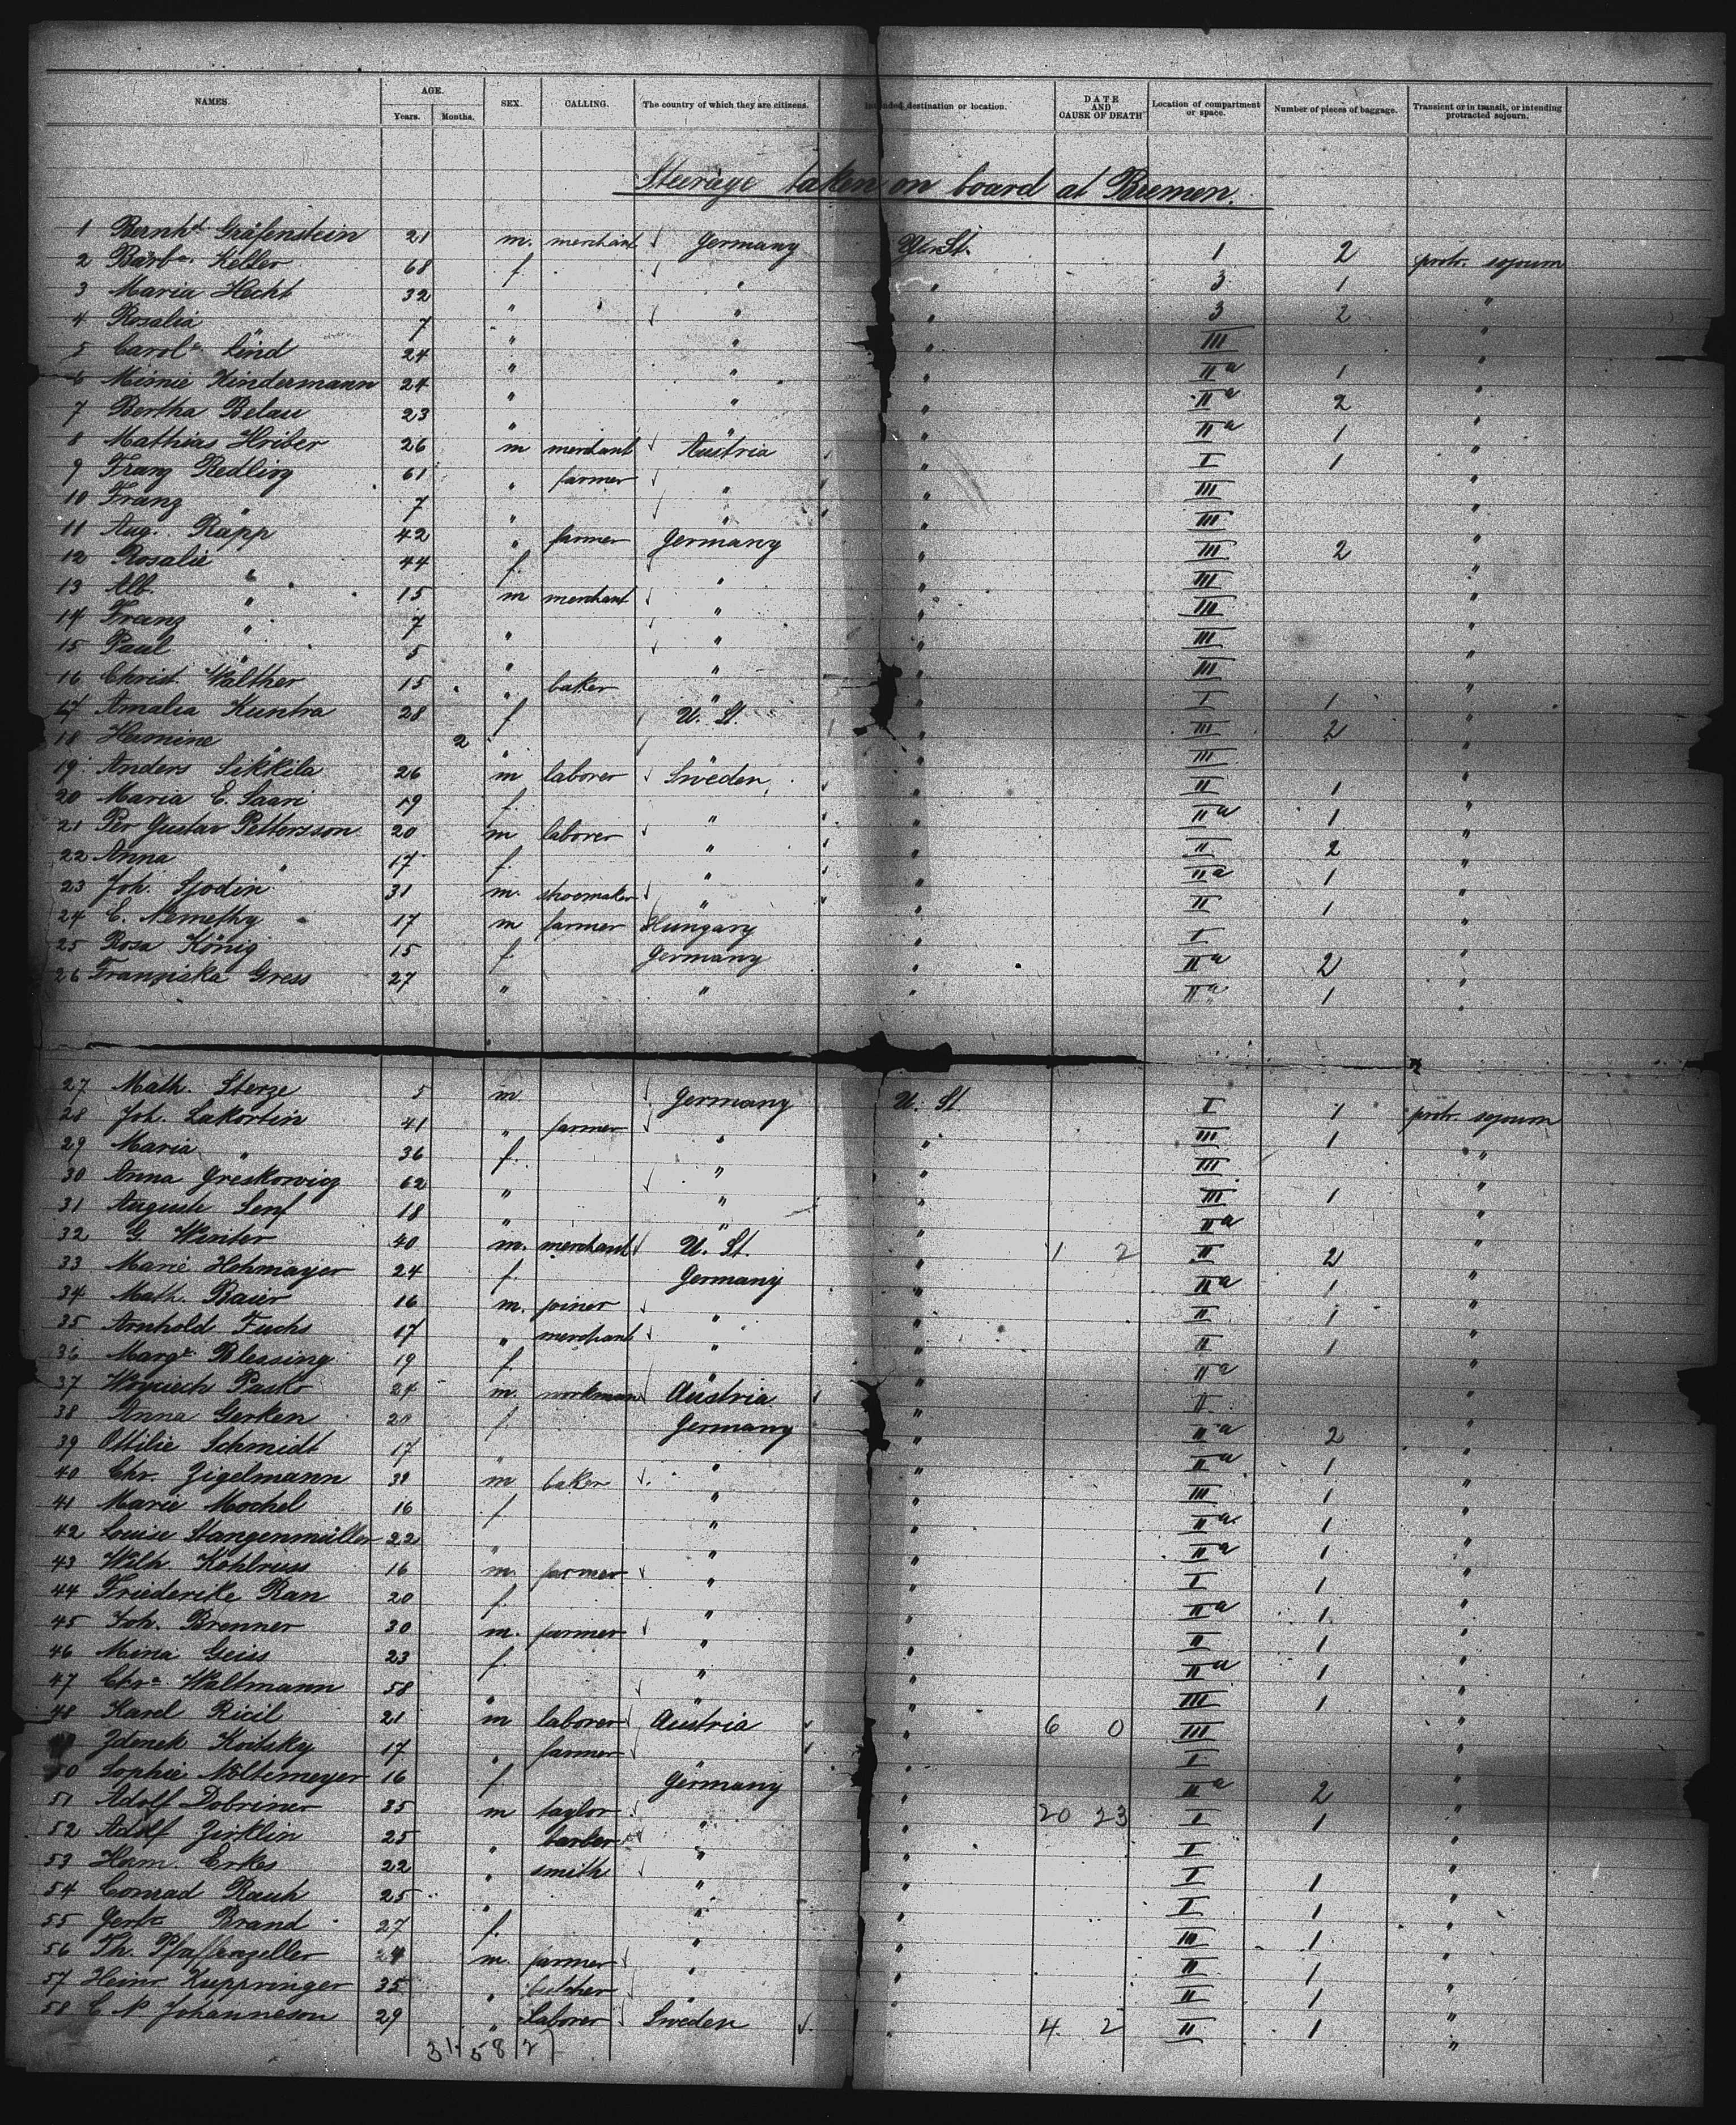 NAMES. AGE. SEX. CALLING. The country of which they are citizens. Intended destination or location. DATE AND CAUSE OF DEATH Location of compartment or space. Number of pieces of baggage. Transient or in transit, or intending protracted sojourn.
Years. Months.
Steerage taken on board at Bremen.
1 Bernhd Gräfenstein 21 m. merchant Germany Un. St. 1 2 protr. sojourn
2 Barba. Keller 68 f " " 3 1 "
3 Maria Hecht 32 " " " 3 2 "
4 Rosalia " 7 " " " III "
5 Carole Lind 24 " " " IIa 1 "
6 Minnie Kindermann 24 " " " IIa 2 "
7 Bertha Belau 23 " " " IIa 1 "
8 Mathias Hriber 26 m merchant Austria " I 1 "
9 Franz Redling 61 " farmer " " III "
10 Franz " 7 " " " III "
11 Aug. Rapp 42 " farmer Germany " III 2 "
12 Rosalie " 44 f. " " III "
13 Alb. " 15 m merchant " " III "
14 Franz " 7 " " " III "
15 Paul " 5 " " " III "
16 Christ Walther 15 " baker " " I 1 "
17 Amalia Kuntra 28 f U. St. " III 2 "
18 Hermine " 2 " " " III "
19 Anders Sikkila 26 m laborer Sweden " II 1 "
20 Maria E. Saari 19 f. " " IIa 1 "
21 Per Gustav Pettersson 20 m laborer " " II 2 "
22 Anna " 17 f. " " IIa 1 "
23 Joh. Sjodin 31 m. shoemaker " " II 1 "
24 E. Nemethy 17 m farmer Hungary " I "
25 Rosa König 15 f. Germany " IIa 2 "
26 Franziska Gress 27 " " " IIa 1 "
27 Math. Sterze 5 m Germany U. St. I 1 protr. sojourn
28 Joh. Lakortin 41 " farmer " " III 1 "
29 Maria " 36 f. " " III "
30 Anna Greskowicz 62 " " " III 1 "
31 Auguste Senf 18 " " " IIa "
32 G. Winter 40 m. merchant U. St. " 1 2 II 2 "
33 Marie Hohmayer 24 f. Germany " IIa 1 "
34 Math. Baier 16 m. joiner " " II 1 "
35 Arnhold Fuchs 17 " merchant " " II 1 "
36 Marge Blessing 19 f. " " IIa "
37 Woyciech Pasko 24 m. workman Austria " II "
38 Anna Gerken f Germany " IIa 2 "
39 Ottilie Schmidt 17 " " " IIa 1 "
40 Chr. Zigelmann m baker " " III 1 "
41 Marie Mochel 16 f " " IIa 1 "
42 Louise Stangenmüller 22 " " " IIa 1 "
43 Wilh Kohlruss 16 m. farmer " " I 1 "
44 Friederike Rau 20 f. " " IIa 1 "
45 Joh. Brenner 30 m. farmer " " II 1 "
46 Mina Geiss 23 f. " " IIa 1 "
47 Chra Waltmann 58 " " " III 1 "
48 Karel Ricil 21 m laborer Austria " 6 0 III "
Zdenek Koitsky 17 " farmer " I "
50 Sophie Noltemeyer 16 f Germany " IIa 2 "
51 Adolf Dobriner 35 m taylor " " 20 23 I 1 "
52 Adolf Zirklin 25 " barber " " I "
53 Herm. Erkes 22 " smith " " I 1 "
54 Conrad Rauh 25 " " " I 1 "
55 Brand 27 f. " " III 1 "
56 Th. Pfaffenzeller 24 m. farmer " " II 1 "
57 Heinr. Kuppringer 35 " butcher " " II 1 "
58 C. N. Johanneson 29 " Laborer Sweden " 4 2 II 1 "
31 58 27